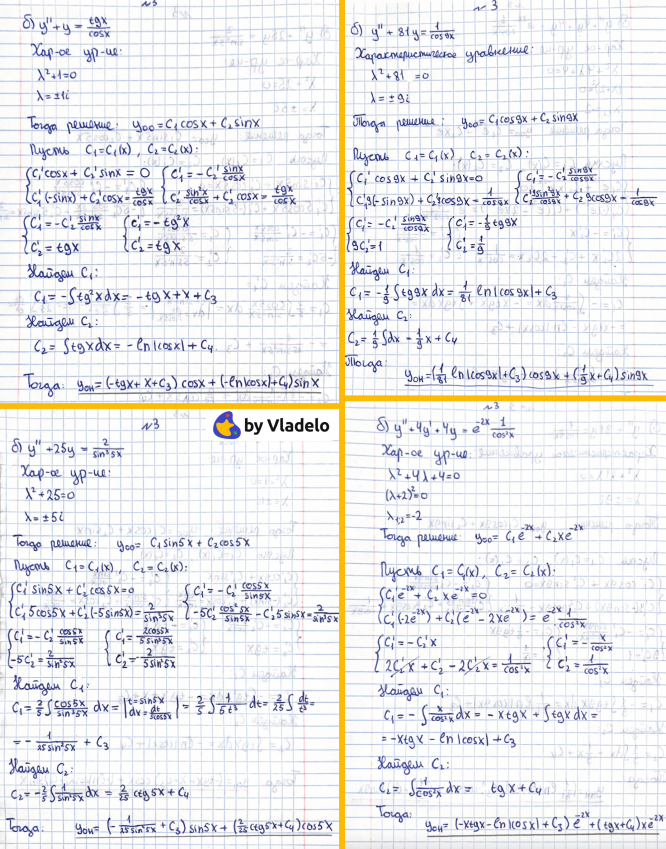 №3
б) y'' + y = tgx/cosx
Хар-ое ур-ие:
λ² + 1 = 0
λ = ±i
Тогда решение: yоо = C₁cosx + C₂sinx
Пусть C₁ = C₁(x), C₂ = C₂(x):
{C₁'cosx + C₂'sinx = 0 {C₁' = -C₂' sinx/cosx
{C₁'(-sinx) + C₂'cosx = tgx/cosx {C₂' sin²x/cosx + C₂'cosx = tgx/cosx
{C₁' = -C₂' sinx/cosx {C₁' = -tg²x
{C₂' = tgx {C₂' = tgx
Найдем C₁:
C₁ = -∫tg²xdx = -tgx + x + C₃
Найдем C₂:
C₂ = ∫tgxdx = -ln|cosx| + C₄
Тогда: yон = (-tgx + x + C₃)cosx + (-ln|cosx| + C₄)sinx
№3
б) y'' + 81y = 1/cos9x
Характеристическое уравнение:
λ² + 81 = 0
λ = ±9i
Тогда решение: yоо = C₁cos9x + C₂sin9x
Пусть C₁ = C₁(x), C₂ = C₂(x):
{C₁'cos9x + C₂'sin9x = 0 {C₁' = -C₂' sin9x/cos9x
{C₁'9(-sin9x) + C₂'9cos9x = 1/cos9x {C₂' 9sin²9x/cos9x + C₂'9cos9x = 1/cos9x
{C₁' = -C₂' sin9x/cos9x {C₁' = -1/9 tg9x
{9C₂' = 1 {C₂' = 1/9
Найдем C₁:
C₁ = -1/9 ∫tg9xdx = 1/81 ln|cos9x| + C₃
Найдем C₂:
C₂ = 1/9 ∫dx = 1/9 x + C₄
Тогда:
yон = (1/81 ln|cos9x| + C₃)cos9x + (1/9 x + C₄)sin9x
by Vladelo
№3
б) y'' + 25y = 2/sin³5x
Хар-ое ур-ие:
λ² + 25 = 0
λ = ±5i
Тогда решение: yоо = C₁sin5x + C₂cos5x
Пусть C₁ = C₁(x), C₂ = C₂(x):
{C₁'sin5x + C₂'cos5x = 0 {C₁' = -C₂' cos5x/sin5x
{C₁'5cos5x + C₂'(-5sin5x) = 2/sin³5x {-5C₂' cos²5x/sin5x - C₂'5sin5x = 2/sin³5x
{C₁' = -C₂' cos5x/sin5x {C₁' = 2cos5x/5sin³5x
{-5C₂' = 2/sin²5x {C₂' = -2/5sin²5x
Найдем C₁:
C₁ = 2/5 ∫cos5x/sin³5x dx = |t = sin5x dx = dt/5cos5x| = 2/5 ∫1/5t³ dt = 2/25 ∫dt/t³ =
= -1/25sin²5x + C₃
Найдем C₂:
C₂ = -2/5 ∫1/sin²5x dx = 2/25 ctg5x + C₄
Тогда: yон = (-1/25sin²5x + C₃)sin5x + (2/25 ctg5x + C₄)cos5x
№3
б) y'' + 4y' + 4y = e⁻²ˣ 1/cos²x
Хар-ое ур-ие:
λ² + 4λ + 4 = 0
(λ+2)² = 0
λ₁,₂ = -2
Тогда решение: yоо = C₁e⁻²ˣ + C₂xe⁻²ˣ
Пусть C₁ = C₁(x), C₂ = C₂(x):
{C₁'e⁻²ˣ + C₂'xe⁻²ˣ = 0
{C₁'(-2e⁻²ˣ) + C₂'(e⁻²ˣ - 2xe⁻²ˣ) = e⁻²ˣ 1/cos²x
{C₁' = -C₂'x {C₁' = -x/cos²x
{2C₂'x + C₂' - 2C₂'x = 1/cos²x {C₂' = 1/cos²x
Найдем C₁:
C₁ = -∫x/cos²x dx = -xtgx + ∫tgxdx =
= -xtgx - ln|cosx| + C₃
Найдем C₂:
C₂ = ∫1/cos²x dx = tgx + C₄
Тогда:
yон = (-xtgx - ln|cosx| + C₃)e⁻²ˣ + (tgx + C₄)xe⁻²ˣ